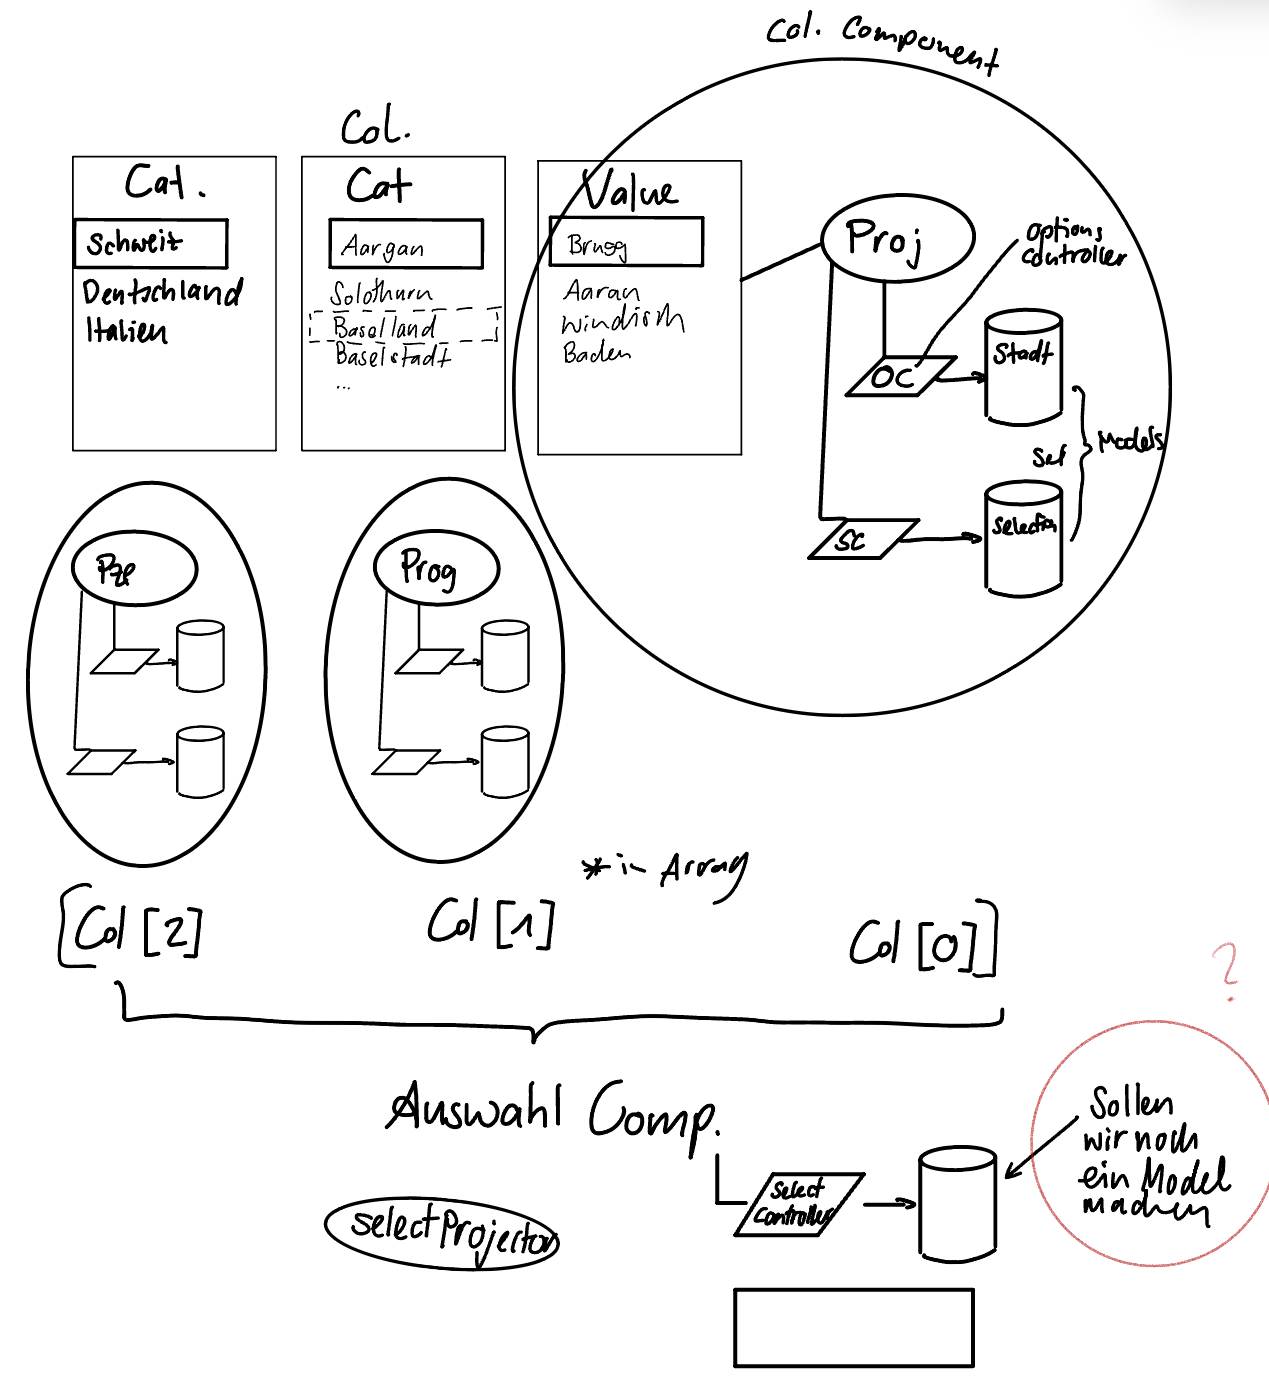 Col. Component
Col.
Cat.
Schweiz
Deutschland
Italien
Cat
Aargau
Solothurn
Baselland
Baselstadt
...
Value
Brugg
Aarau
Windisch
Baden
Proj
Options
Controller
OC
Stadt
Models
SC
Selection
Proj
* in Array
[Col [2]
Col [1]
Col [0]]
?
Auswahl Comp.
Select
Controller
selectProjector
Sollen
wir noch
ein Model
machen